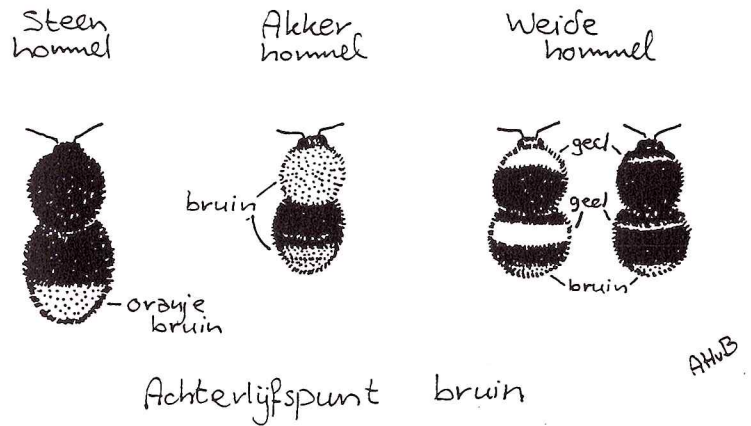 Steen
hommel
Akker
hommel
Weide
hommel
geel
bruin
geel
bruin
oranje
bruin
AHvB
Achterlijfspunt bruin